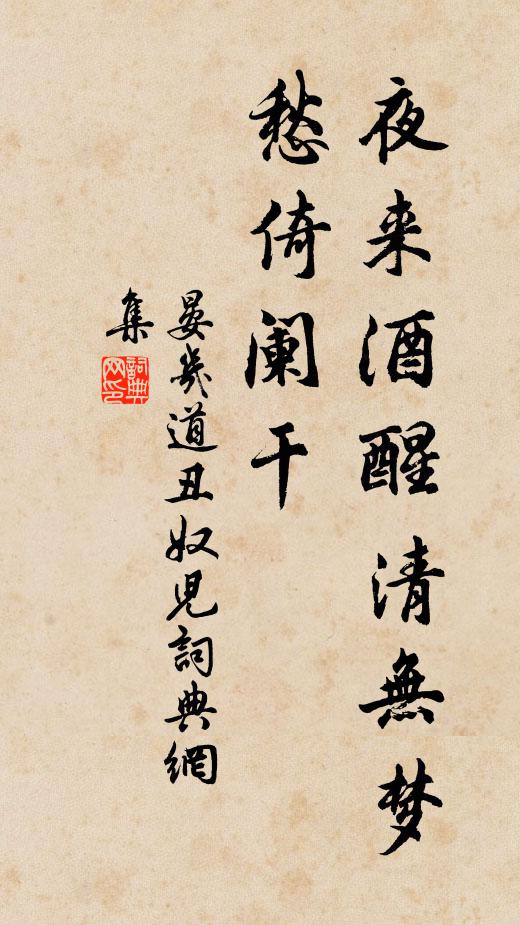 夜来酒醒清無梦
愁倚阑干
晏幾道丑奴児詞典網
集
詞典网印